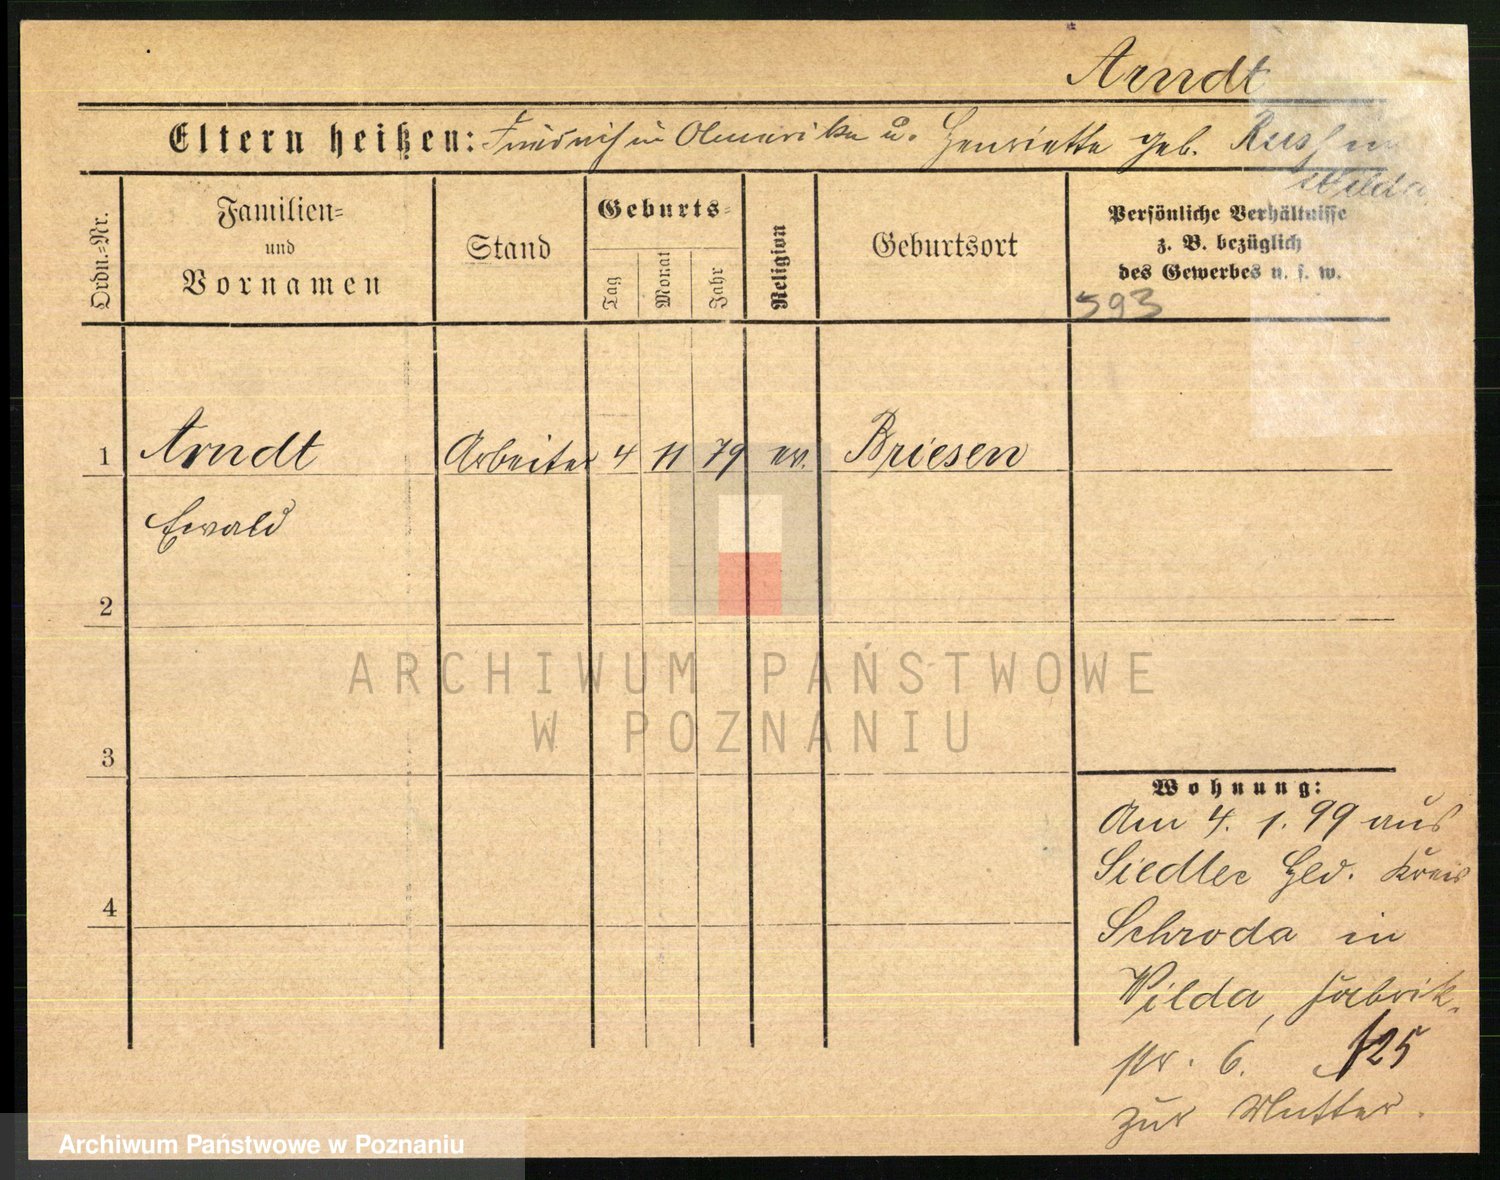 Arndt
Eltern heißen: Friedrich in Amerika u. Henriette geb.
Wilda
Ordn.-Nr.
Familien-
und
Vornamen
Stand
Geburts-
Tag
Monat
Jahr
Religion
Geburtsort
Persönliche Verhältnisse
z. B. bezüglich
des Gewerbes u. s. w.
593
1 Arndt Arbeiter 4 11 79 ev. Briesen
Ewald
2
ARCHIWUM PAŃSTWOWE
W POZNANIU
3
4
Wohnung:
Am 4. 1. 99 aus
Siedlec Hld. Kreis
Schroda in
Wilda, Fabrik-
str. 6. 125
zur Mutter.
Archiwum Państwowe w Poznaniu